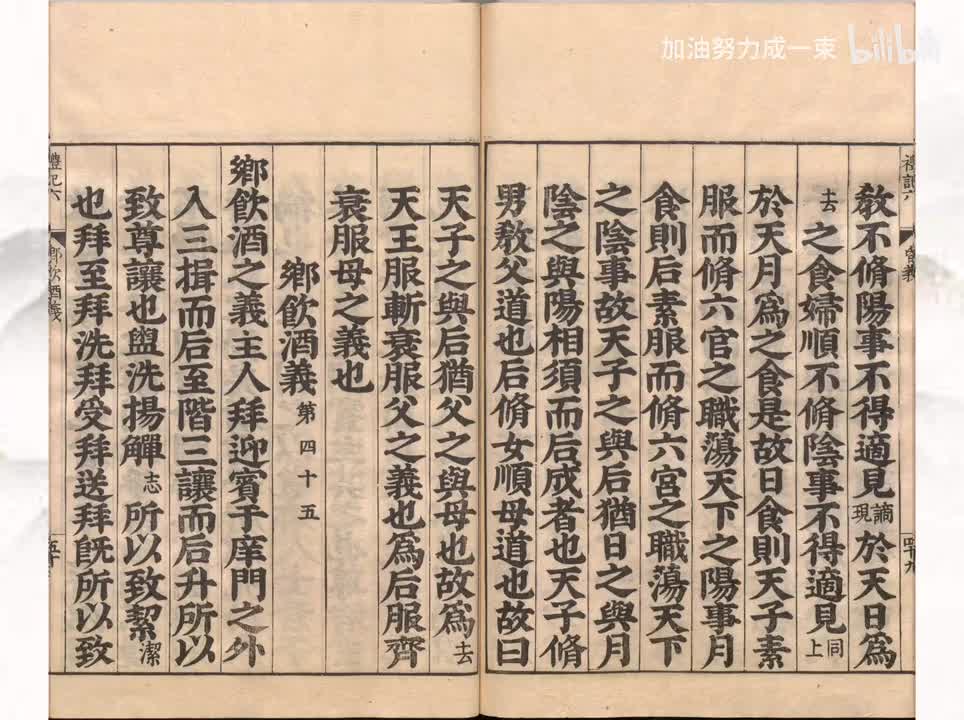 加油努力成一束 bilibili
禮記六 昏義 四十九
教不脩陽事不得適見謫現於天日爲
去之食婦順不脩陰事不得適見同上
於天月爲之食是故日食則天子素
服而脩六官之職蕩天下之陽事月
食則后素服而脩六宮之職蕩天下
之陰事故天子之與后猶日之與月
陰之與陽相須而后成者也天子脩
男教父道也后脩女順母道也故曰
天子之與后猶父之與母也故爲去
天王服斬衰服父之義也爲后服齊
衰服母之義也
鄉飮酒義第四十五
鄉飮酒之義主人拜迎賓于庠門之外
入三揖而后至階三讓而后升所以
致尊讓也盥洗揚觶志所以致絜潔
也拜至拜洗拜受拜送拜旣所以致
禮記六 鄉飮酒義 五十